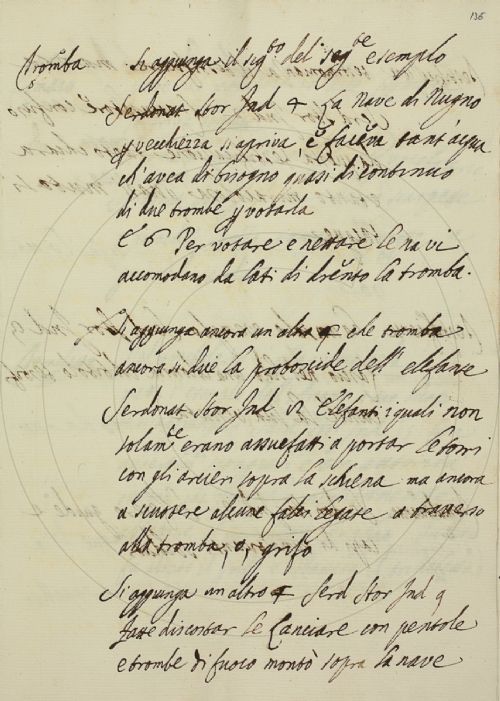 136
Tromba
si aggiunga il seg.to del seg.te esemplo
Serdonat Stor Ind 4 La Nave di Nugno
p vecchiezza s'apriva, e faceva tant'acqua
ch'avea di bisogno quasi di continuo
di due trombe p votarla
E 6 Per votare e nettare le navi
accomodano da lati di drento la tromba.
Si aggiunga ancora un altro che tromba
ancora si dice la proboscide dell elefante
Serdonat Stor Ind Elefanti i quali non
solam.te erano assuefatti a portar le torri
con gli arcieri sopra la schiena ma ancora
a scuotere alcune falci legate a traverso
alla tromba, o, grifo
Si aggiunga un altro Serd Stor Ind 9
Fatte discostar le Lanciare con pentole
e trombe di fuoco montò sopra la nave